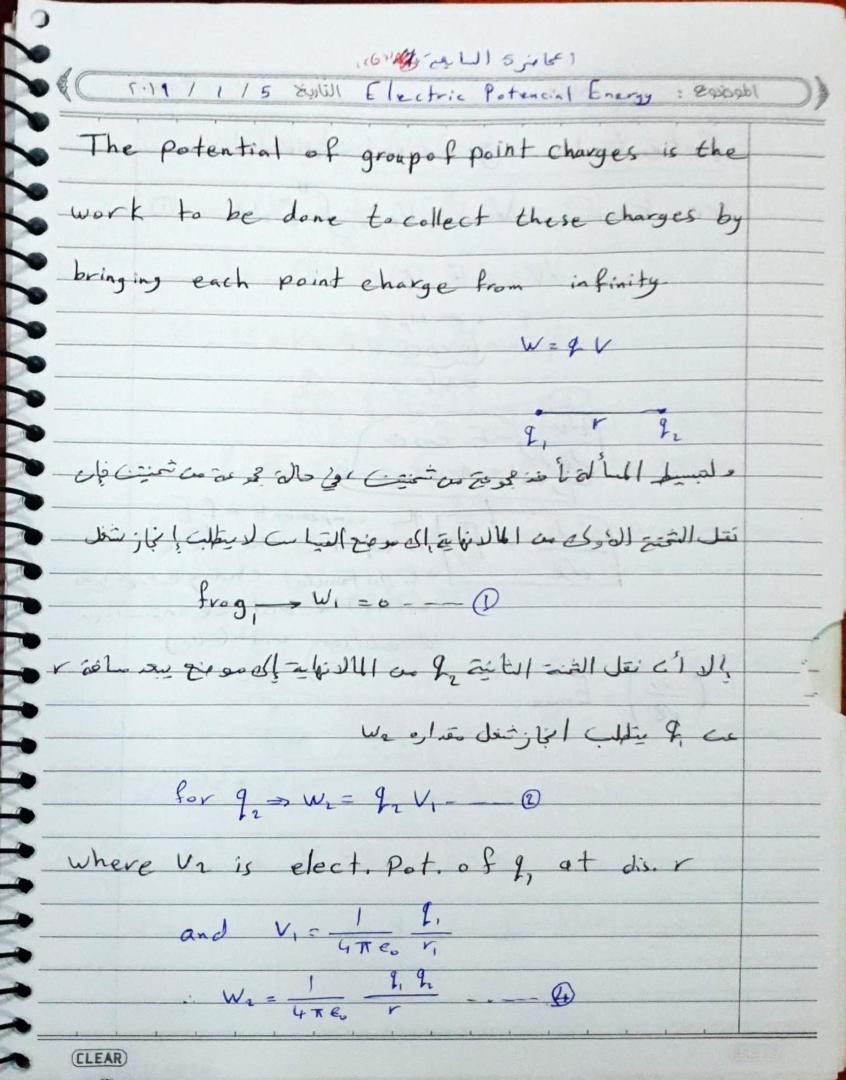 المحاضرة السابعة
الموضوع : Electric Potencial Energy التاريخ 5 / 1 / ٢٠١٩
The potential of group of point charges is the
work to be done to collect these charges by
bringing each point charge from infinity
W = q V
q₁ r q₂
ولتبسيط المسألة نأخذ مجموعة من شحنتين، في حالة مجموعة من شحنتين فإن
نقل الشحنة الأولى من المالانهاية إلى موضع القياس لا يتطلب إنجاز شغل
from q₁ → W₁ = 0 ---- ①
إلا أن نقل الشحنة الثانية q₂ من المالانهاية إلى موضع يبعد مسافة r
عن q₁ يتطلب انجاز شغل مقداره W₂
for q₂ ⇒ W₂ = q₂ V₁ ------ ②
where V₂ is elect. Pot. of q₁ at dis. r
and V₁ = 1/4πε₀ q₁/r₁
∴ W₂ = 1/4πε₀ q₁ q₂/r ------ ④
CLEAR